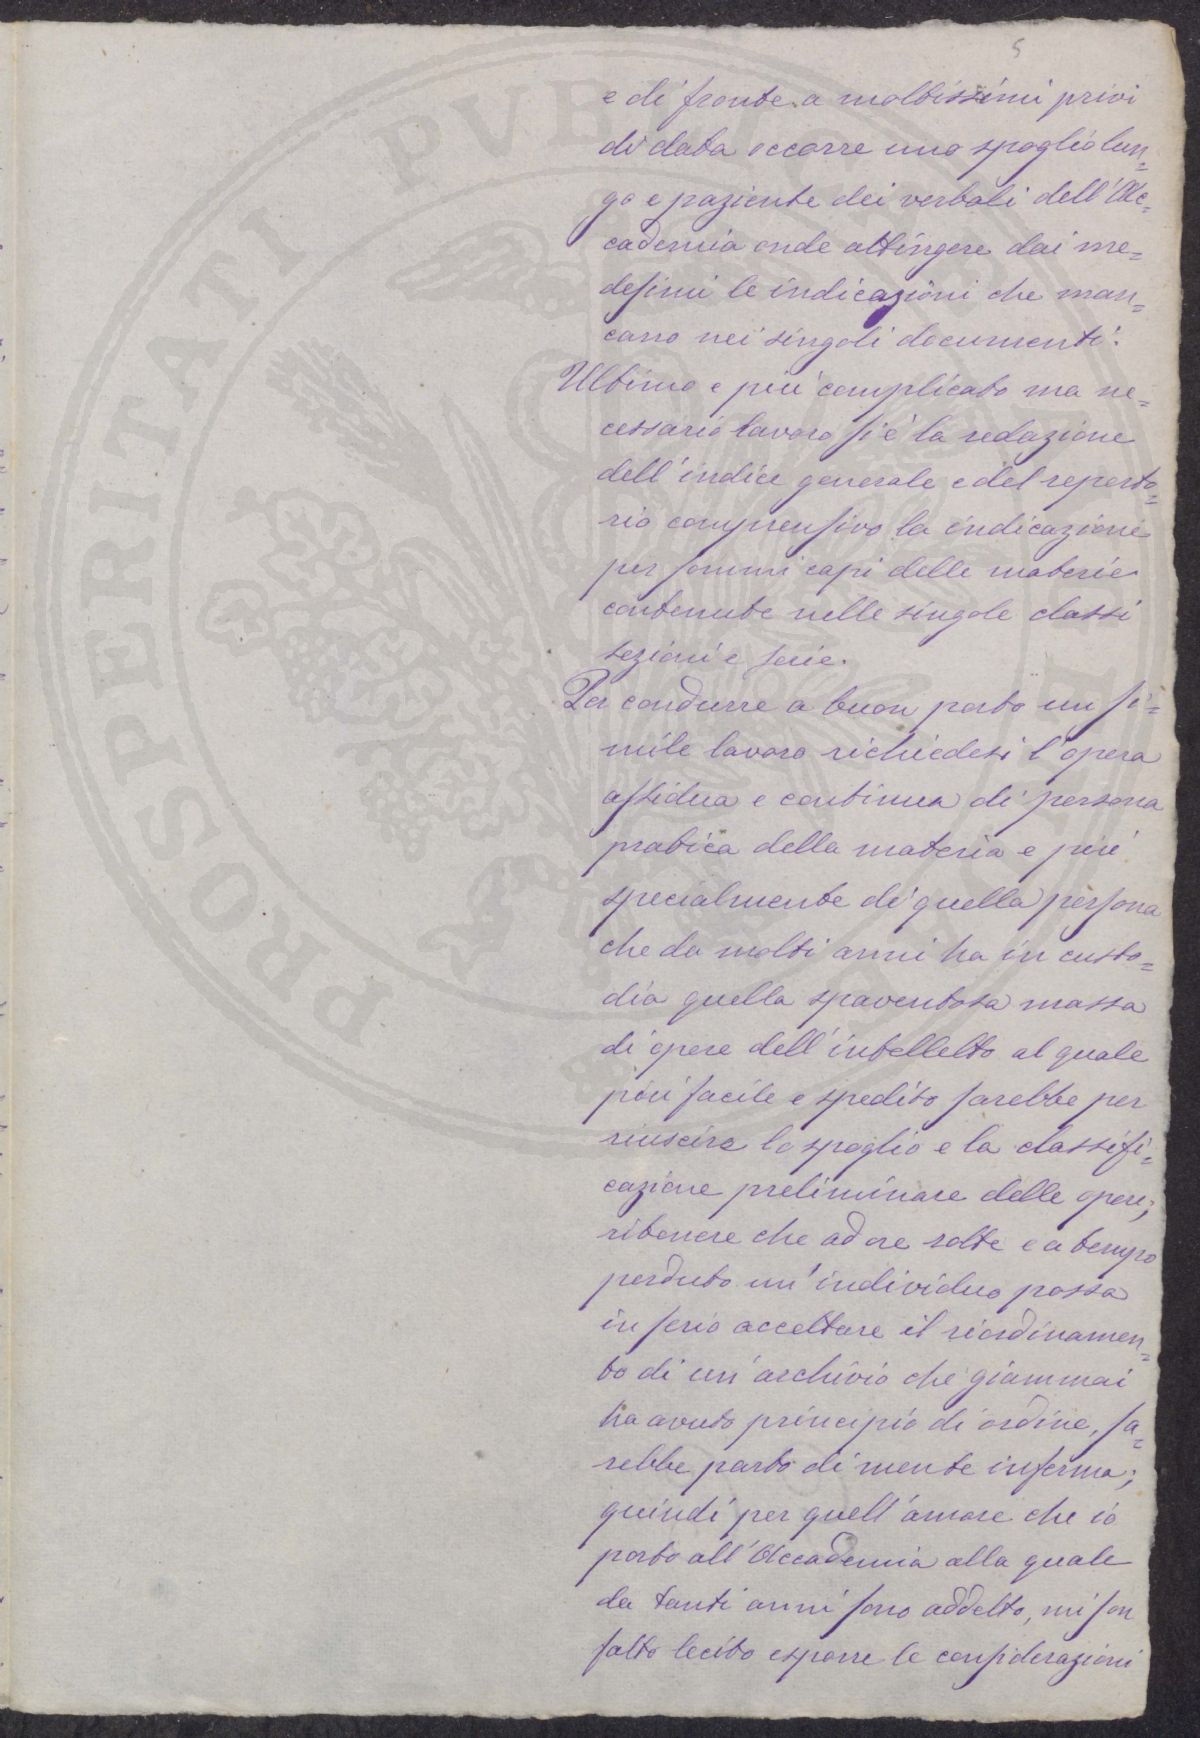 5
e di fronte a moltissimi privi
di data occorre uno spoglio lun=
go e paziente dei verbali dell'Ac=
cademia onde attingere dai me=
desimi le indicazioni che man=
cano nei singoli documenti.
Ultimo e più complicato ma ne=
cessario lavoro si è la redazione
dell'indice generale e del reperto=
rio comprensivo la indicazione
per sommi capi delle materie
contenute nelle singole classi
sezioni e serie.
Per condurre a buon porto un si=
mile lavoro richiedesi l'opera
assidua e continua di persona
pratica della materia e più
specialmente di quella persona
che da molti anni ha in custo=
dia quella spaventosa massa
di opere dell'intelletto al quale
più facile e spedito sarebbe per
riuscire lo spoglio e la classifi=
cazione preliminare delle opere;
ritenere che ad ore rolte e a tempo
perduto un'individuo possa
in serio accettare il riordinamen=
to di un'archivio che giammai
ha avuto principio di ordine, sa=
rebbe parto di mente inferma;
quindi per quell'amore che io
porto all'Accademia alla quale
da tanti anni sono addetto, mi son
fatto lecito esporre le considerazioni
PROSPERITATI PVBLICAE